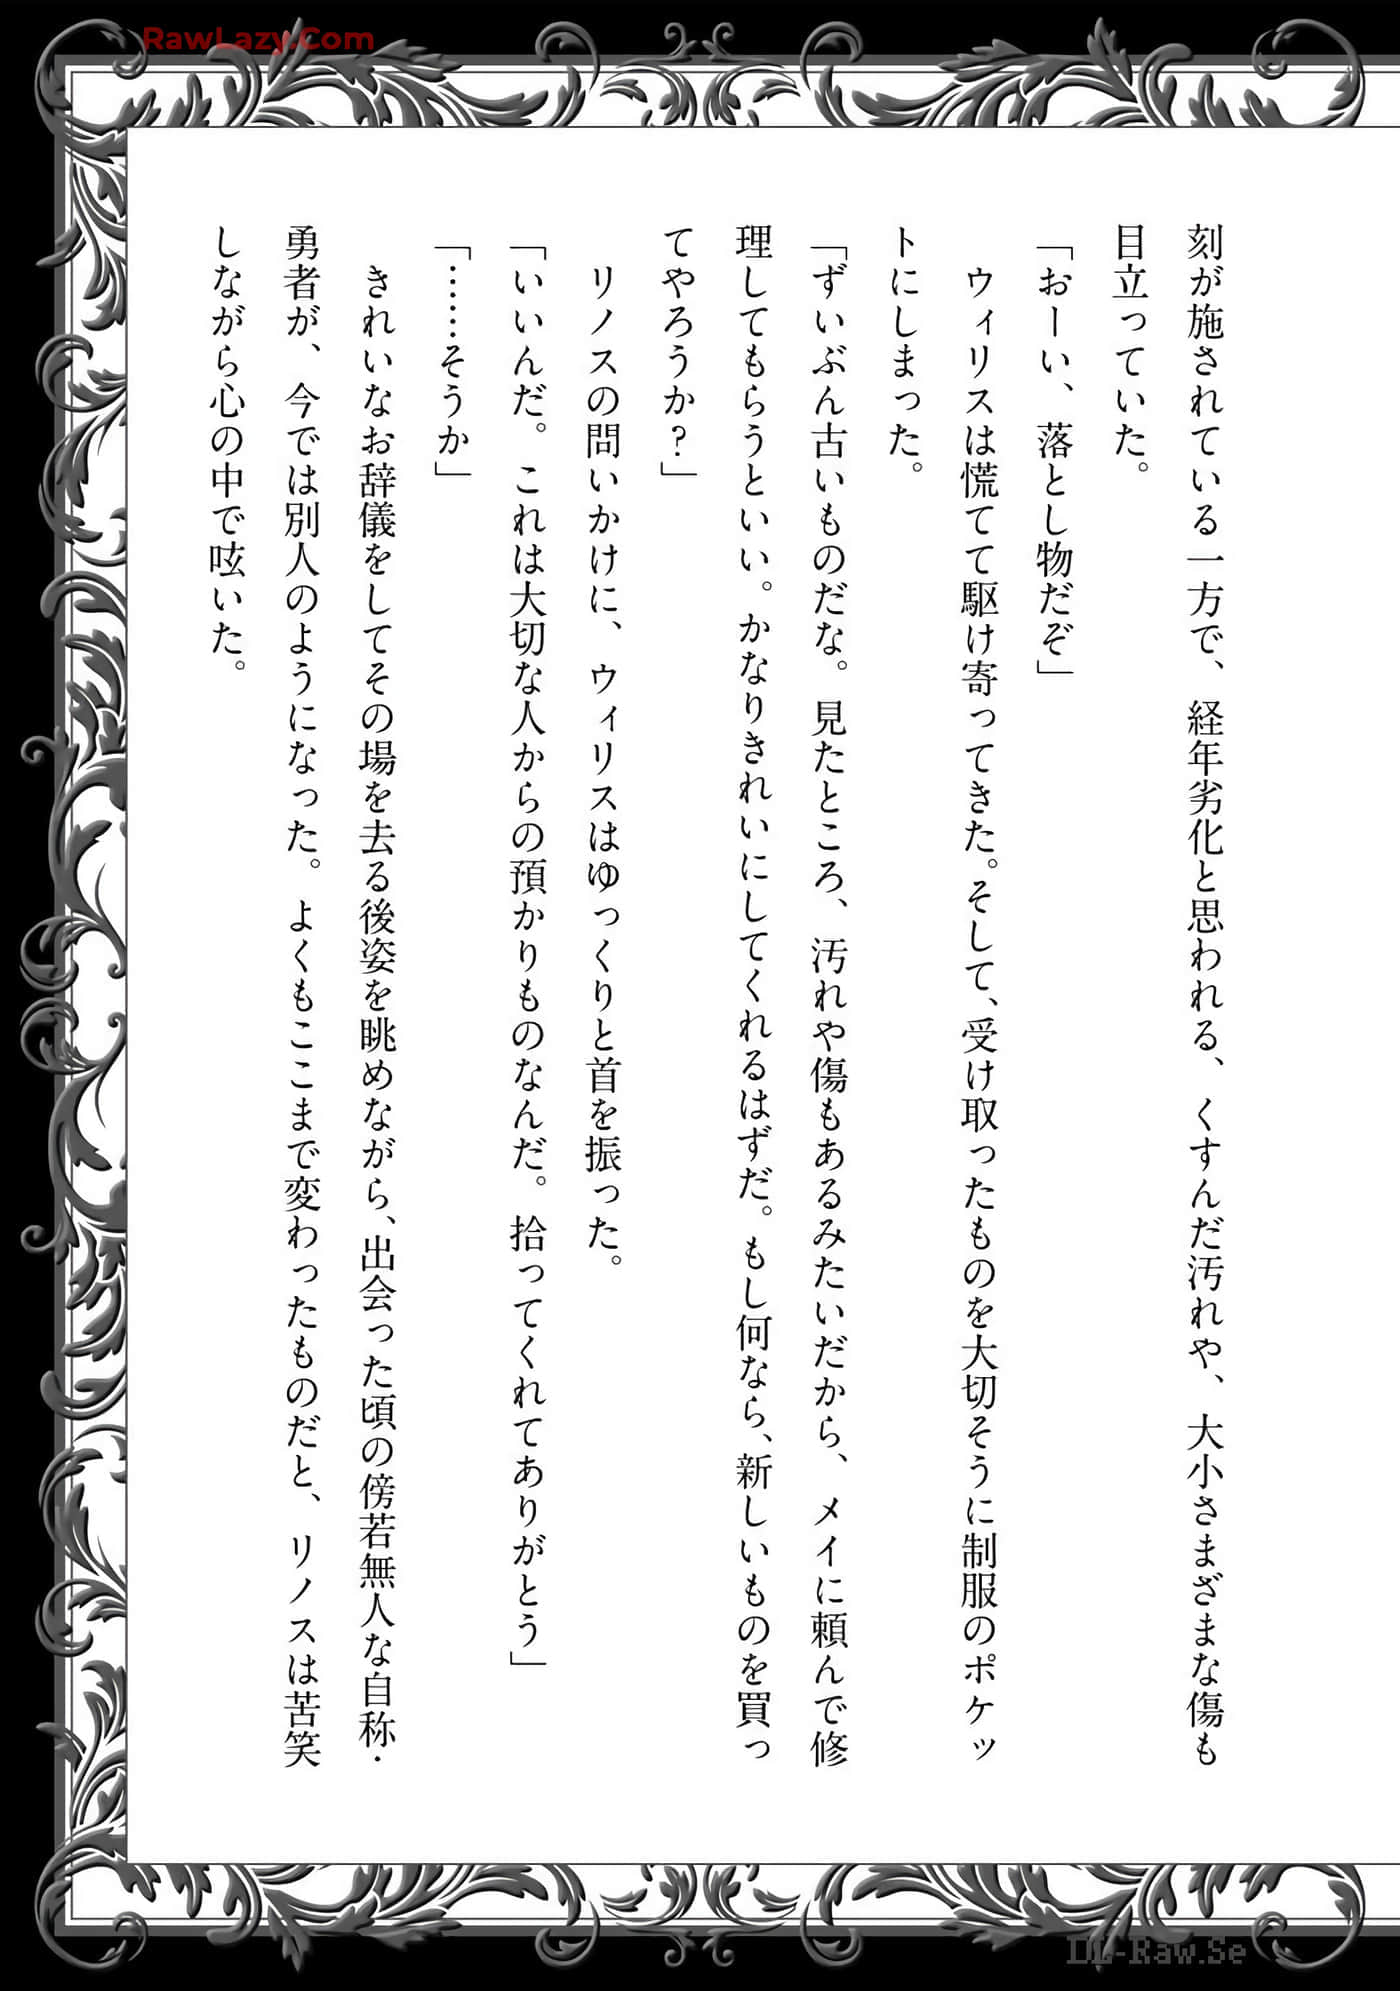 RawLazy.Com
刻が施されている一方で、経年劣化と思われる、くすんだ汚れや、大小さまざまな傷も
目立っていた。
「おーい、落とし物だぞ」
ウィリスは慌てて駆け寄ってきた。そして、受け取ったものを大切そうに制服のポケッ
トにしまった。
「ずいぶん古いものだな。見たところ、汚れや傷もあるみたいだから、メイに頼んで修
理してもらうといい。かなりきれいにしてくれるはずだ。もし何なら、新しいものを買っ
てやろうか?」
リノスの問いかけに、ウィリスはゆっくりと首を振った。
「いいんだ。これは大切な人からの預かりものなんだ。拾ってくれてありがとう」
「……そうか」
きれいなお辞儀をしてその場を去る後姿を眺めながら、出会った頃の傍若無人な自称・
勇者が、今では別人のようになった。よくもここまで変わったものだと、リノスは苦笑
しながら心の中で呟いた。
DL-Raw.Se